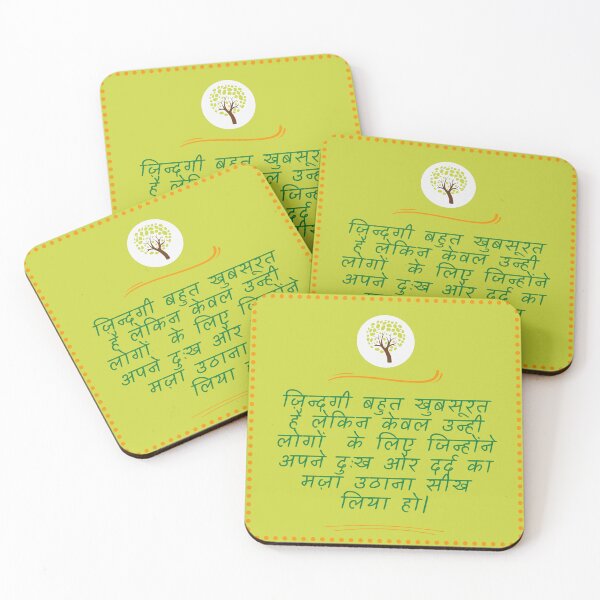 ज़िन्दगी बहुत
हैं
ज़िन्दगी बहुत खुबसूरत
हैं लेकिन केवल उन्ही
लोगों के लिए जिन्होंने
अपने दुःख और दर्द का
ज़िन्दगी बहुत खुबसूरत
हैं लेकिन केवल उन्ही
लोगों के लिए
अपने दुःख और
मज़ा उठाना
लिया
ज़िन्दगी बहुत खुबसूरत
हैं लेकिन केवल उन्ही
लोगों के लिए जिन्होंने
अपने दुःख और दर्द का
मज़ा उठाना सीख
लिया हो।